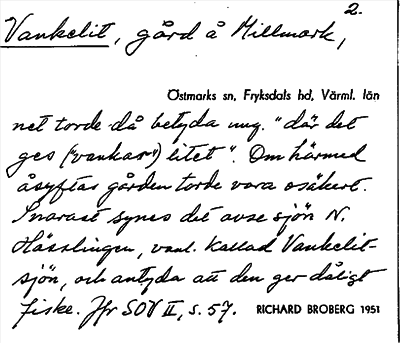 2.
Vankelit, gård å Millmark,
Östmarks sn, Fryksdals hd, Värml. län
net torde då betyda ung. "där det
ges ("vankas") litet". Om härmed
åsyftas gården torde vara osäkert.
Snarast synes det avse sjön N.
Hässlingen, vanl. kallad Vankelit-
sjön, och antyda att den ger dåligt
fiske. Jfr SOV II, s. 57. RICHARD BROBERG 1951